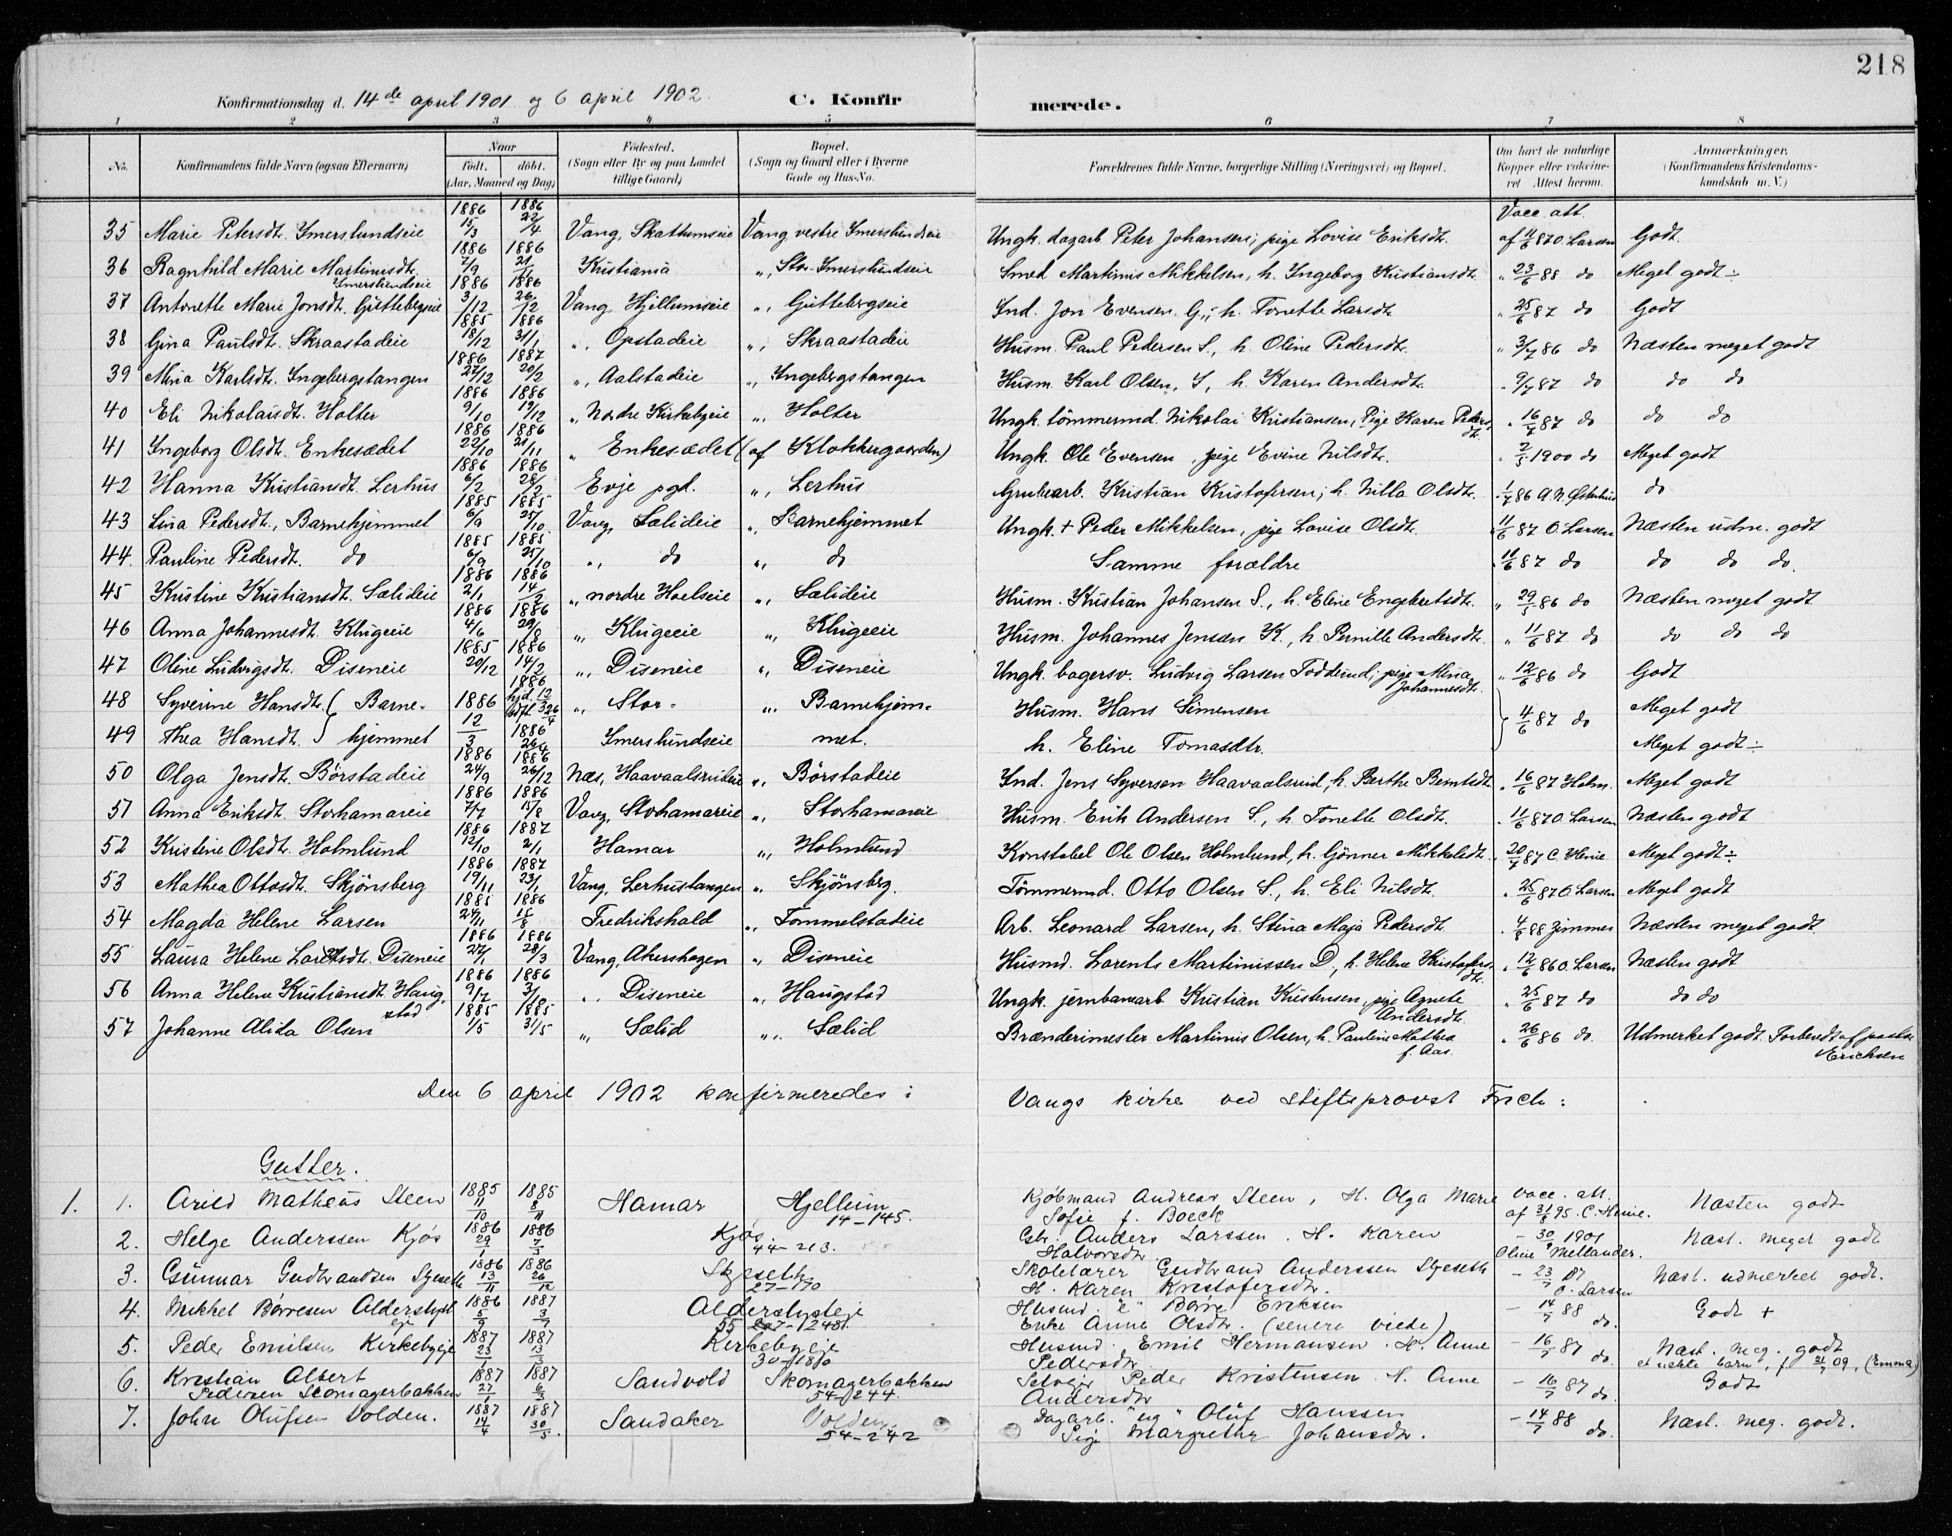 218
Konfirmationsdag d. 14de april 1901 og 6 april 1902. C. Konfirmerede.
1 2 3 4 5 6 7 8
No. Konfirmandens fulde Navn (ogsaa Efternavn) Naar født. døbt. (Aar, Maaned og Dag) Fødested. (Sogn eller By og paa Landet tillige Gaard) Bopæl. (Sogn og Gaard eller i Byerne Gade og Hus-No. Forældrenes fulde Navne, borgerlige Stilling (Næringsvei) og Bopæl. Om havt de naturlige Kopper eller vakcineret Attest herom. Anmærkninger. (Konfirmandens Kristendomskundskab m. V.)
35 Marie Petersdt. Imerslundseie 1886 15/3 1886 22/4 Vang, Skattumseie Vang vestre Imerslundseie Ungk. dagarb. Peter Johansen; pige Lovise Eriksdt. Vacc. att. af 11/6 87 O. Larsen Godt
36 Ragnhild Marie Martinusdt. Imerslundseie 1886 7/9 1886 21/11 Kristiania " Stor-Imerslundseie Smed Martinus Mikkelsen, h. Ingeborg Kristiansdt. " 23/6 88 do Meget godt ÷
37 Antonette Marie Jonsdt. Guttebergseie 1886 3/12 1886 26/12 Vang, Hjellumseie " Guttebergseie Ind. Jon Evensen G., h. Tonette Larsdt " 25/6 87 do Godt
38 Gina Paulsdt. Skraastadeie 1885 18/12 1886 31/1 " Opstadeie " Skraastadeie Husm. Paul Pedersen S., h. Oline Pedersdt. " 3/7 86 do Næsten meget godt
39 Mina Karlsdt. Ingebergstangen 1886 27/12 1887 20/2 " Aalstadeie " Ingebergstangen Husm. Karl Olsen, S, h. Karen Andersdt. " 9/7 87 do do do
40 Eli Nikolaisdt. Holter 1886 9/10 1886 19/12 " Nordre Kirkebyeie " Holter Ungk. tömmermd. Nikolai Kristiansen, Pige Karen Pedersdt. " 16/7 87 do do do
41 Ingeborg Olsdt. Enkesædet 1886 22/10 1886 21/11 " Enkesædet (af Klokkergaarden) Ungk. Ole Evensen, pige Evine Nilsdt. " 2/3 1900 do Meget godt
42 Hanna Kristiansdt. Lerhus 1886 6/2 1886 28/2 Evje pgd. " Lerhus Grubearb. Kristian Kristofersen; h. Nilla Olsdt. 1/7 86 do
43 Lina Pedersdt., Barnehjemmet 1885 6/9 1885 25/10 Vang, Sælideie " Barnehjemmet Ungk. + Peder Mikkelsen, pige Lovise Olsdt. 11/6 87 O. Larsen Næsten udm. godt
44. Pauline Pedersdt. do 1885 6/9 1885 25/10 " do " do Samme forældre " 11/6 87 do do do do.
45 Kristine Kristiansdt. Sælideie 1886 2/1 1886 14/2 " nordre Hoelseie " Sælideie Husm. Kristian Johansen S., h. Eline Engebretsdt. " 29/5 86 do Næsten meget godt
46 Anna Johannesdt. Klugeeie 1886 4/6 1886 29/8 " Klugeeie " Klugeeie Husm. Johannes Jensen K., h. Pernille Andersdt. " 11/6 87 do do do do
47 Oline Ludvigsdt. Diseneie 1885 20/12 1886 14/2 " Diseneie " Diseneie Ungk. bagersv. Ludvig Larsen Toddeud; pige Mina Johannesdt. " 12/6 86 do Godt
48 Syverine Hansdt. ( Barne- 1886 1886 hjd. 12/3 26/4 " Stor- " Barnehjem- Husm. Hans Simensen 4/6 87 do Meget godt
49 Thea Hansdt. } hjemmet 12/3 1886 26/4 Imerslundseie met. h. Eline Tomasdtr. Meget godt ÷
50 Olga Jensdt. Börstadeie 1886 24/9 1886 26/12 Næs, Haavaalsrudeie " Börstadeie Ind. Jens Syversen Haavaalsrud, h. Berthe Berntsdt. " 16/6 87 Holm. Meget godt
51 Anna Eriksdt. Storhamareie 1886 7/7 1886 15/8 Vang, Storhamareie " Storhamareie Husm. Erik Andersen S., h. Tonette Olsdt. " 11/6 87 O. Larsen Næsten godt
52 Kristine Olsdt. Holmlund 1886 12/10 1887 2/1 Hamar " Holmlund Konstabel Ole Olsen Holmlund, h. Gönner Mikkelsdt. " 20/7 87 C. Heme Meget godt ÷
53 Mathea Ottosdt. Skjönsberg 1886 19/11 1887 23/1 Vang, Lerhustangen " Skjönsberg. Tömmermd. Otto Olsen S., h. Eli Nilsdt. " 25/6 87 O. Larsen Meget godt
54 Magda Helene Larsen 1885 24/11 1886 15/8 Fredrikshald " Tommelstadeie Arb. Leonard Larsen, h. Stina Maja Pedersdt. " 4/8 88 Zimmer Næsten meget godt.
55 Laura Helene Larentsdt. Diseneie 1886 27/1 1886 28/3 Vang, Akershagen " Diseneie Husmd. Lorents Martinissen D., h. Helene Kristofersdt. " 12/6 86 O. Larsen Næsten godt
56 Anna Helene Kristiansdt. Haugstad 1886 9/7 1886 3/10 " Diseneie " Haugstad Ungk. jernbanearb. Kristian Kristensen, pige Agnete Andersdt. " 25/6 87 do do do
57 Johanne Alida Olsen 1885 1/5 1885 31/5 " Sælid " Sælid Brænderimester Martinus Olsen, h. Pauline Mathea f. Aas. " 26/6 86 do. Udmerket godt. Forberedt af pastor Erichsen
Den 6 april 1902 konfirmeredes i Vangs kirke ved stiftsprovst Frich:
Gutter.
1. 1. Arild Mathæus Steen 1885 11/10 1885 8/11 Hamar Hjellum 14-145. Kjøbmand Andreas Steen, H. Olga Marie Sofie f. Boeck Vacc. att. af 31/8 95. C. Heme. Næsten godt
2. Helge Anderssen Kjøs 1886 29/1 1886 7/3 Kjøs. 44-213. Gbr. Anders Larssen. H. Karen Halvorsdtr. - 30/8 1901 Oline Mellander. Næst. meget godt
3. Gunnar Gudbrandsen Skjeseth 1886 13/11 1886 26/12 Skjeseth 27-170 Skolelærer Gudbrand Anderssen Skjeseth H. Karen Kristofersdtr. - 23/7 87 O. Larsen Næst. udmerket godt.
4. Mikkel Børresen Alderslysteje 1886 5/9 1887 3/7 Alderslysteje 55 1248. Husmd. "e" Børre Eriksen Enke Anne Olsdtr. (senere viede) - 14/7 88 do. Godt +
5. Peder Emilsen Kirkebyeje 1887 23/1 1887 13/3 Kirkebyeje 30-1810 Husmd. Emil Hermansen. H. Anne Pedersdtr. - 16/7 87 do. Næst. meg. godt
6. Kristian Albert Pedersen Skomagerbakken 1887 27/1 1887 6/3 Sandvold Skomagerbakken 54-244. Selvejr Peder Kristensen. H. Anne Andersdtr. - 16/7 87 do. et uekte barn, f. 21/7 09, (Emma) Godt
7. John Olufsen Volden. 1887 14/4 1887 30/5 Sandaker Volden. 54-242 Dagarb. "ug" Oluf Hanssen Pige Margrethe Johansdtr. - 14/7 88 do. Næst. meg. godt.